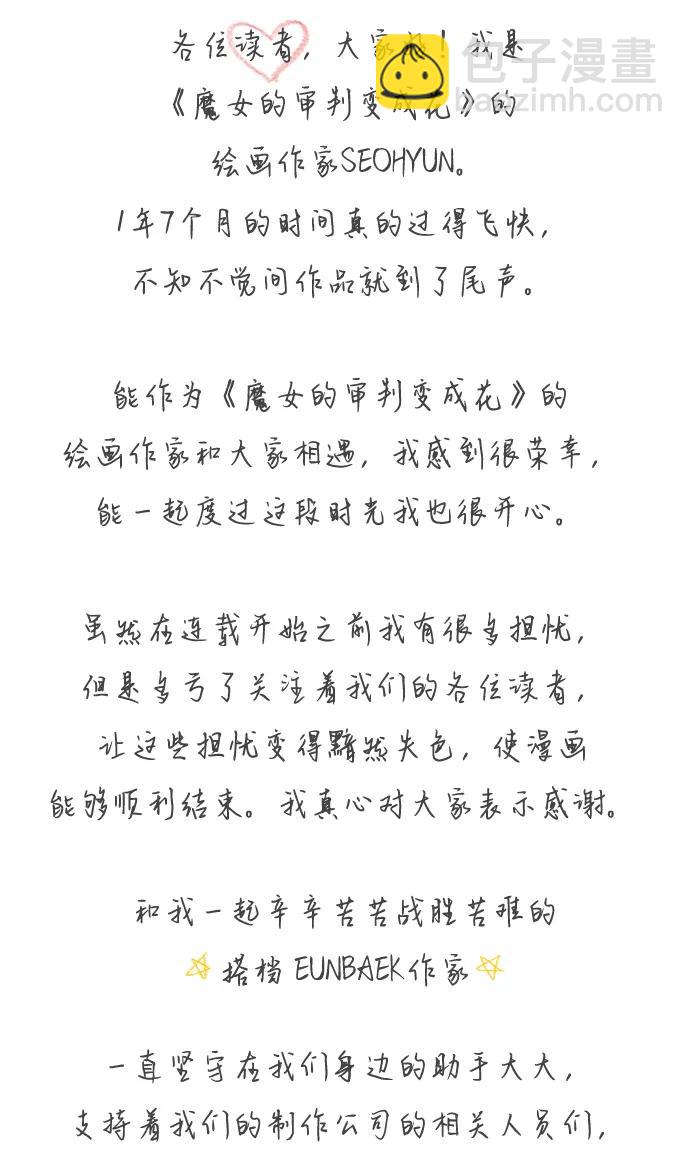 各位读者，大家好！我是
包子漫畫
baozimh.com
《魔女的审判变成花》的
绘画作家SEOHYUN。
1年7个月的时间真的过得飞快，
不知不觉间作品就到了尾声。
能作为《魔女的审判变成花》的
绘画作家和大家相遇，我感到很荣幸，
能一起度过这段时光我也很开心。
虽然在连载开始之前我有很多担忧，
但是多亏了关注着我们的各位读者，
让这些担忧变得黯然失色，使漫画
能够顺利结束。我真心对大家表示感谢。
和我一起辛辛苦苦战胜苦难的
搭档 EUNBAEK作家
一直坚守在我们身边的助手大大，
支持着我们的制作公司的相关人员们，